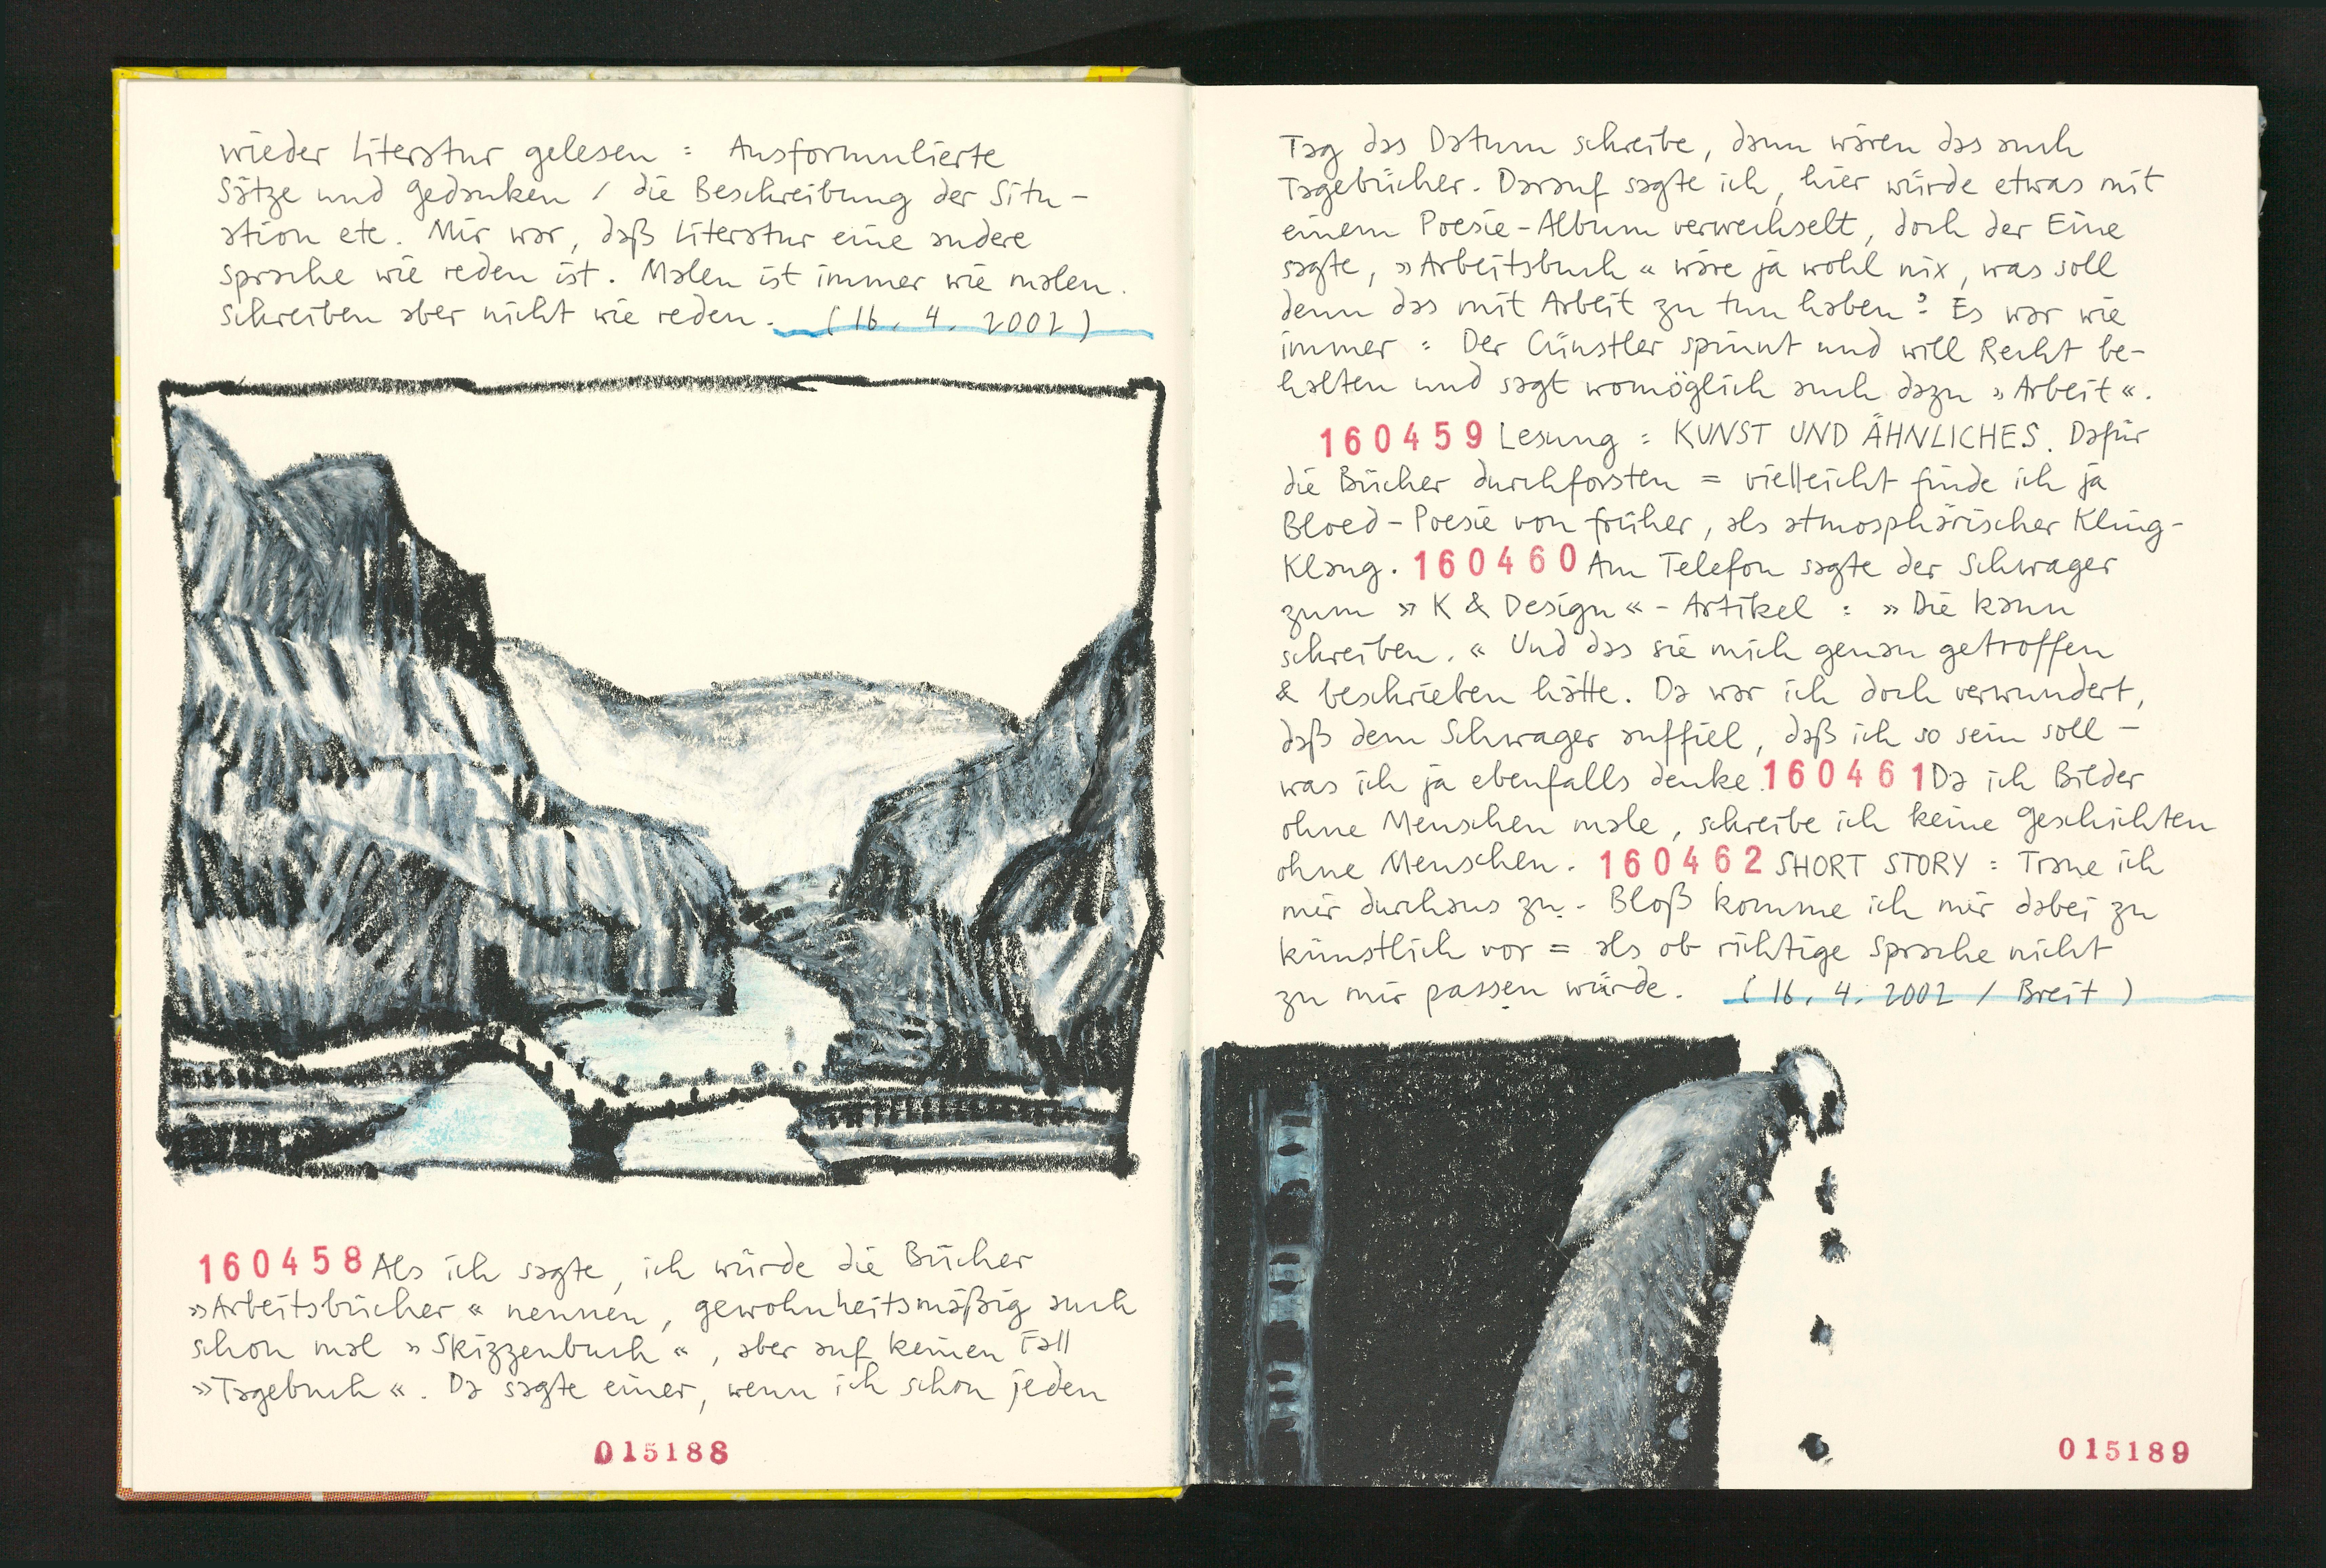 wieder Literatur gelesen : Ausformulierte
Sätze und Gedanken / die Beschreibung der Situ-
ation etc. Mir war, daß Literatur eine andere
Sprache wie reden ist. Malen ist immer wie malen.
Schreiben aber nicht wie reden. (16. 4. 2002)
160458 Als ich sagte, ich würde die Bücher
»Arbeitsbücher« nennen, gewohnheitsmäßig auch
schon mal »Skizzenbuch«, aber auf keinen Fall
»Tagebuch«. Da sagte einer, wenn ich schon jeden
015188
Tag das Datum schreibe, dann wären das auch
Tagebücher. Darauf sagte ich, hier würde etwas mit
einem Poesie-Album verwechselt, doch der Eine
sagte, »Arbeitsbuch« wäre ja wohl nix, was soll
denn das mit Arbeit zu tun haben? Es war wie
immer : Der Cünstler spinnt und will Recht be-
halten und sagt womöglich auch dazu »Arbeit«.
160459 Lesung : KUNST UND ÄHNLICHES. Dafür
die Bücher durchforsten = vielleicht finde ich ja
Bloed-Poesie von früher, als atmosphärischer Kling-
Klang. 160460 Am Telefon sagte der Schwager
zum »K & Design«-Artikel : »Die kann
schreiben.« Und das sie mich genau getroffen
& beschrieben hätte. Da war ich doch verwundert,
daß dem Schwager auffiel, daß ich so sein soll –
was ich ja ebenfalls denke. 160461 Da ich Bilder
ohne Menschen male, schreibe ich keine Geschichten
ohne Menschen. 160462 SHORT STORY : Traue ich
mir durchaus zu. Bloß komme ich mir dabei zu
künstlich vor = als ob richtige Sprache nicht
zu mir passen würde. (16. 4. 2002 / Breit)
015189